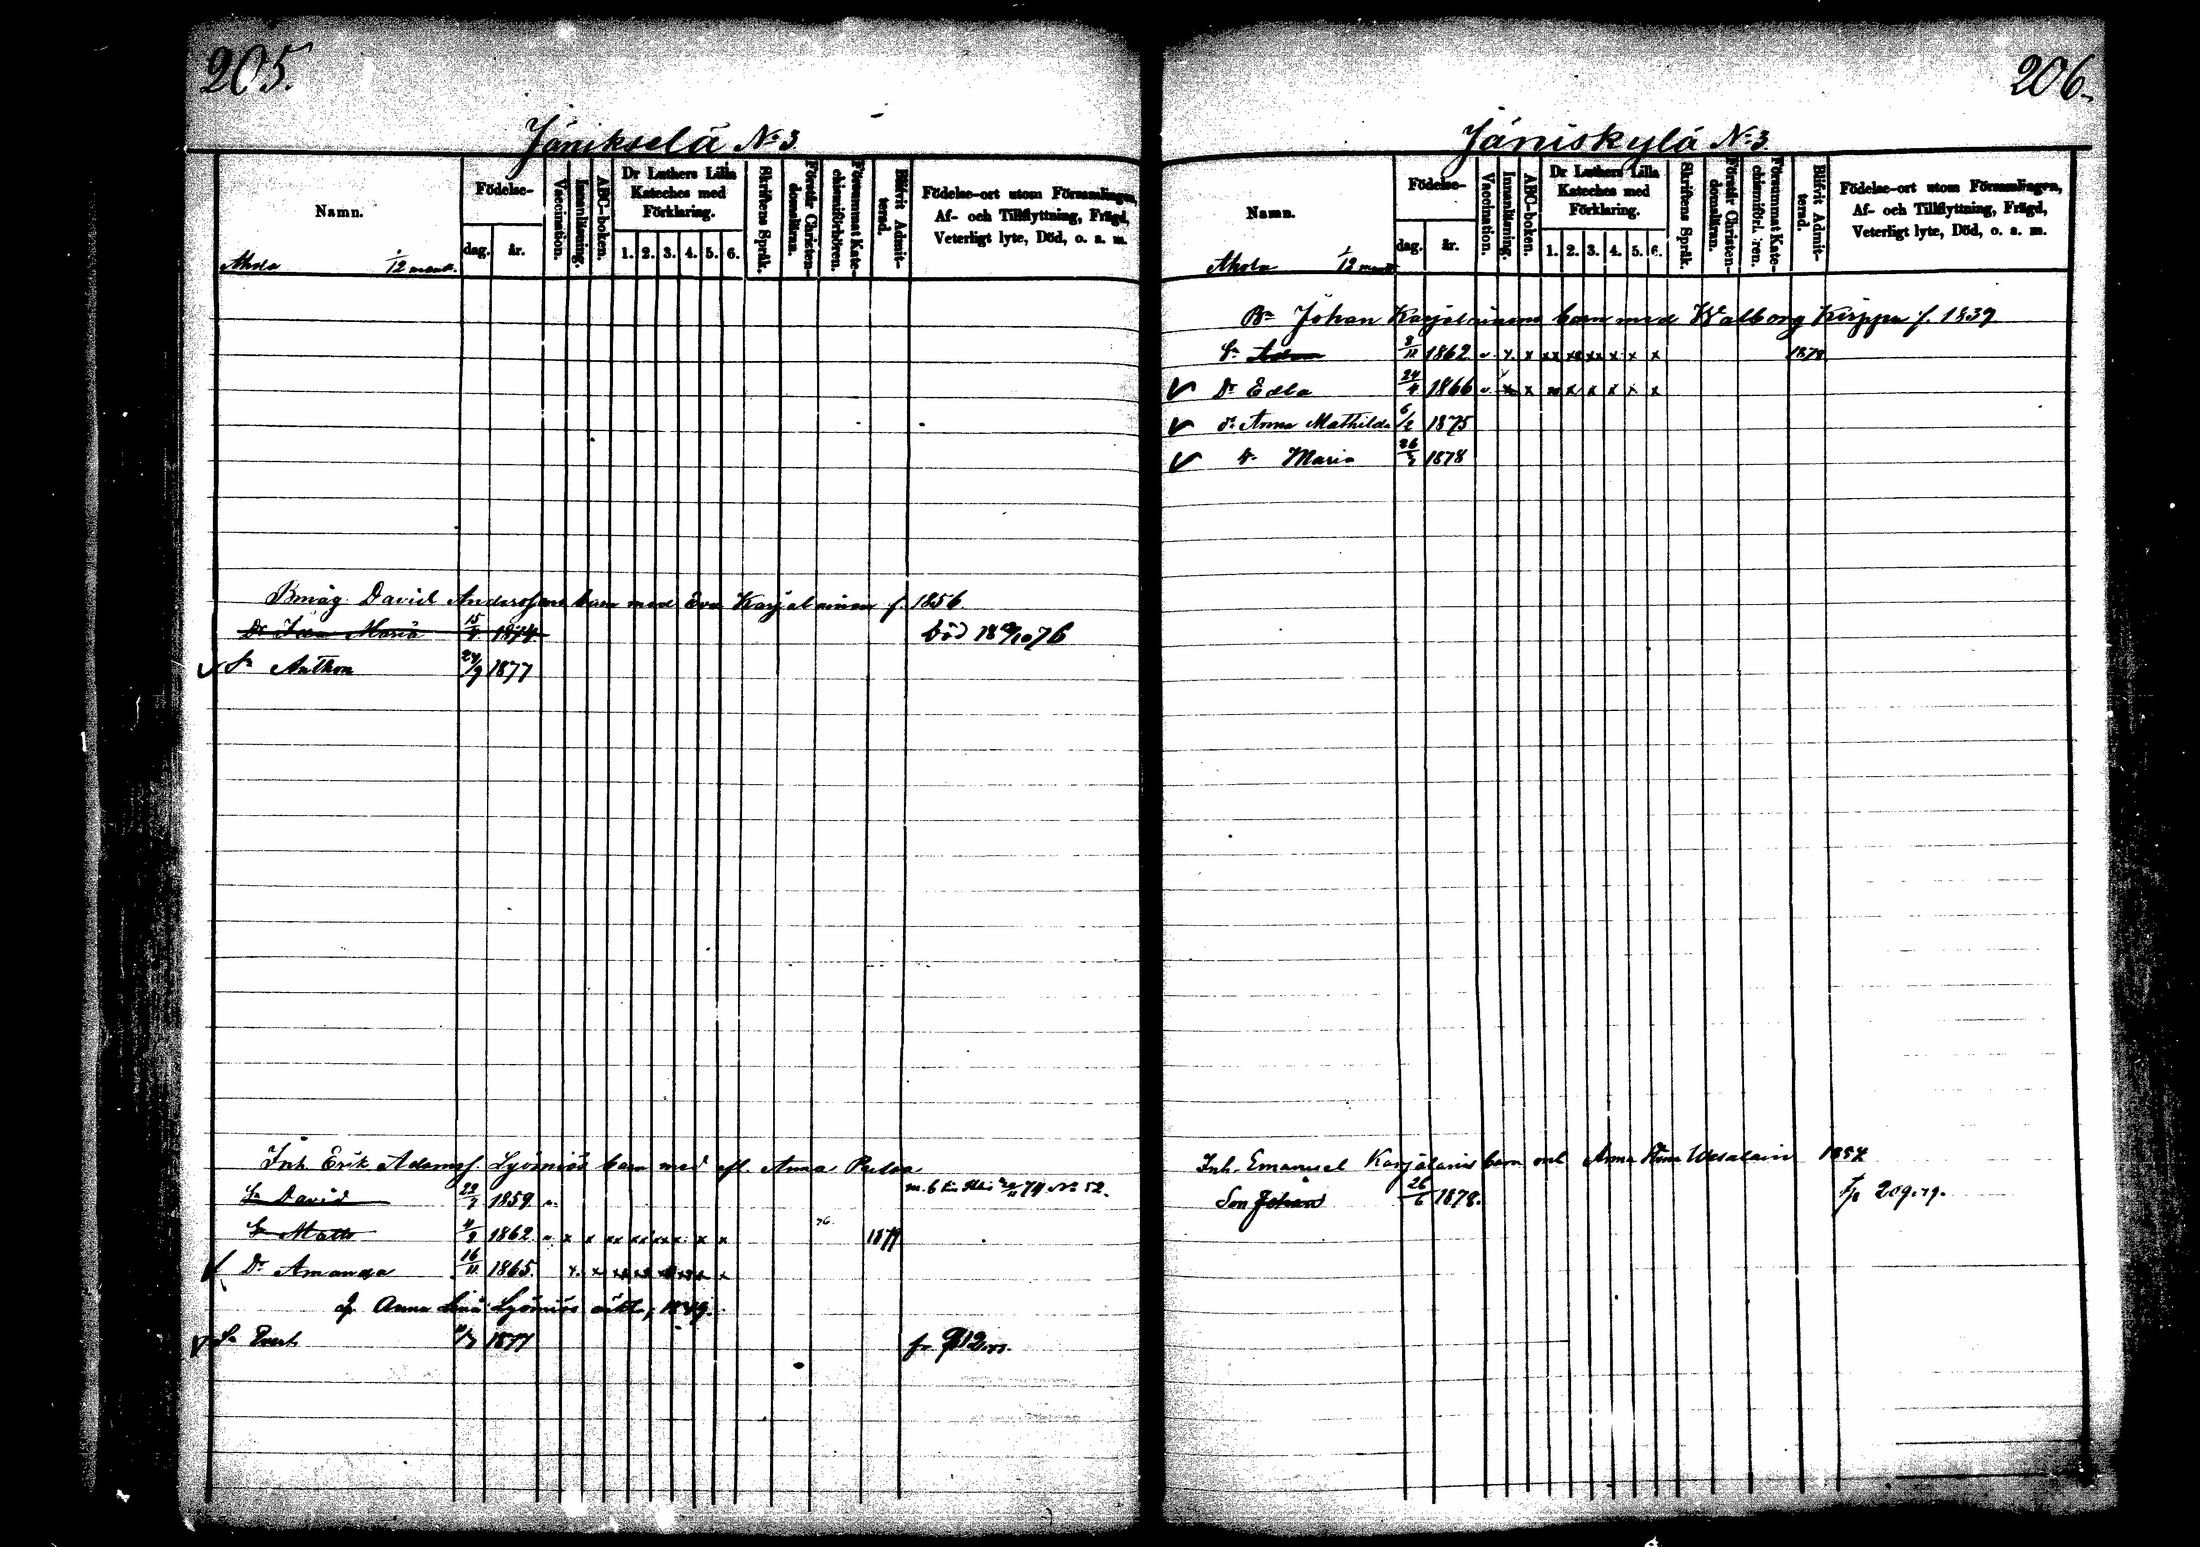 205.
Jänikselä No 3
Namn.
Födelse-
dag.
år.
Vaccination.
Innanläsning.
ABC-boken.
Dr Luthers Lilla Kateches med Förklaring.
1. 2. 3. 4. 5. 6.
Skriftens Språk.
Förstår Christendomsläran.
Försummat Katechismiförhören.
Blifvit Admitterad.
Födelse-ort utom Församlingen,
Af- och Tillflyttning, Frägd,
Veterligt lyte, Död, o. s. m.
Ahola 1/12 mant.
Bmåg David Anderssons barn med Eva Karjalainen f. 1856
Dr Maria 15/4 1874 död 18 /10 76
Sn Anthon 24/9 1877
Inh. Erik Adamsf. Lyömiös barn med afl. Anna
Sn David 22/7 1859 m. b. 74 No 52.
Sn Matts 4/2 1862 x x xx xx xx x x x 76. 1879
Dr Amanda 16/11 1865 x x xx xx xx xx x
Anna Lyömiös
Sn Evert 1877 fr 212
206.
Jäniskylä No 3
Namn.
Födelse-
dag.
år.
Vaccination.
Innanläsning.
ABC-boken.
Dr Luthers Lilla Kateches med Förklaring.
1. 2. 3. 4. 5. 6.
Skriftens Språk.
Förstår Christendomsläran.
Försummat Katechismiförhören.
Blifvit Admitterad.
Födelse-ort utom Församlingen,
Af- och Tillflyttning, Frägd,
Veterligt lyte, Död, o. s. m.
Ahola 1/12 mant
Bn Johan Karjalainens barn med Walborg f. 1839
Sn 8/12 1862 x x xx xx xx x x x 1878
Dr Edla 24/4 1866 x x x x x x x x
dr Anna Mathilda 6/2 1875
dr Maria 26/3 1878
Inh. Emanuel Karjalainens barn med Anna Stina 1854
Son Johan 26/6 1878. Fp 209.